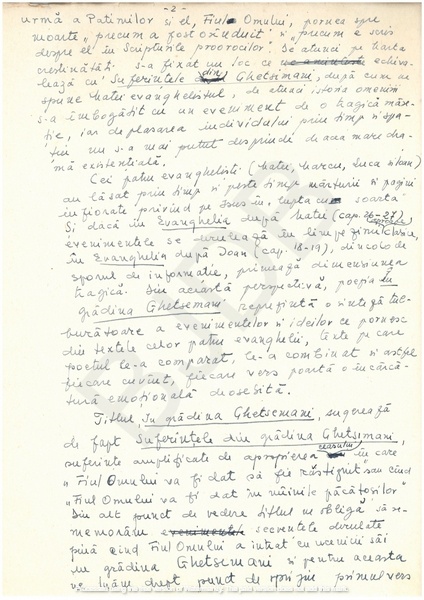 - 2 -
urmă a Patimilor și el, Fiul Omului, pornea spre
moarte „precum a fost orânduit" și „precum e scris
despre el în Scripturile proorocilor". De atunci pe harta
creștinătății s-a fixat un loc ce echiva-
lează cu Suferințele din Ghetsimani, după cum ne
spune Matei evanghelistul, de atunci istoria omenirii
s-a îmbogățit cu un eveniment de o tragică măre-
ție, iar deplasarea individului prin timp și spa-
țiu nu s-a mai putut desprinde de acea mare dra-
mă existențială.
Cei patru evangheliști (Matei, Marcu, Luca și Ioan)
au lăsat prin timp și peste timp mărturii și pagini
înfiorate privind pe Isus în lupta cu soarta
Și dacă în Evanghelia după Matei (cap. 26-27)
evenimentele se derulează în limpezimi clasice,
în Evanghelia după Ioan (cap. 18-19), dincolo de
sporul de informație, primează dimensiunea
tragică. Din această perspectivă, poezia În
grădina Ghetsemani reprezintă o sinteză tul-
burătoare a evenimentelor și ideilor ce pornesc
din textele celor patru evanghelii, texte pe care
poetul le-a comparat, le-a combinat și astfel
fiecare cuvânt, fiecare vers poartă o încărcă-
tură emoțională deosebită.
Titlul, În grădina Ghetsemani, sugerează
de fapt Suferințele din grădina Ghetsimani,
suferințe amplificate de apropierea ceasului în care
„Fiul Omului va fi dat să fie răstignit sau când
„Fiul Omului va fi dat în mâinile păcătoșilor"
Din alt punct de vedere titlul ne obligă să re-
memorăm evenimentele secvențele derulate
până când Fiul Omului a intrat cu ucenicii săi
în grădina Ghetsemani și pentru aceasta
ne luăm drept punct de sprijin primul vers